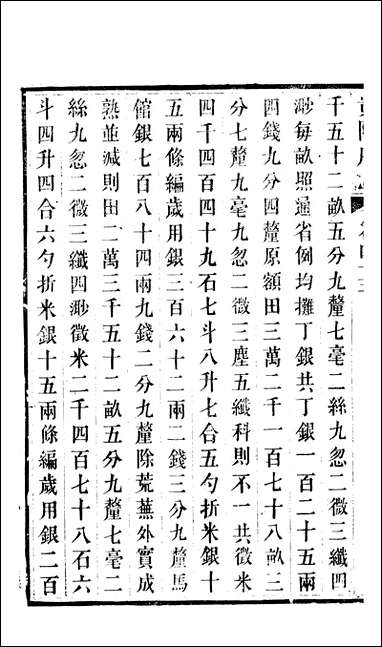 千五十二畝五分九釐七毫二絲九忽二微三纖四
渺每畝照通省例均攤丁銀共丁銀一百二十五兩
四錢九分四釐原額田三萬二千一百七十八畝三
分七釐九毫九忽二微三塵五纖科則不一共徵米
四千四百四十九石七斗八升七合五勺折米銀十
五兩條編歲用銀三百六十二兩二錢三分九釐馬
館銀七百八十四兩九錢二分九釐除荒蕪外實成
熟並減則田二萬三千五十二畝五分九釐七毫二
絲九忽二微三纖四渺徵米二千四百七十八石六
斗四升四合六勺折米銀十五兩條編歲用銀二百